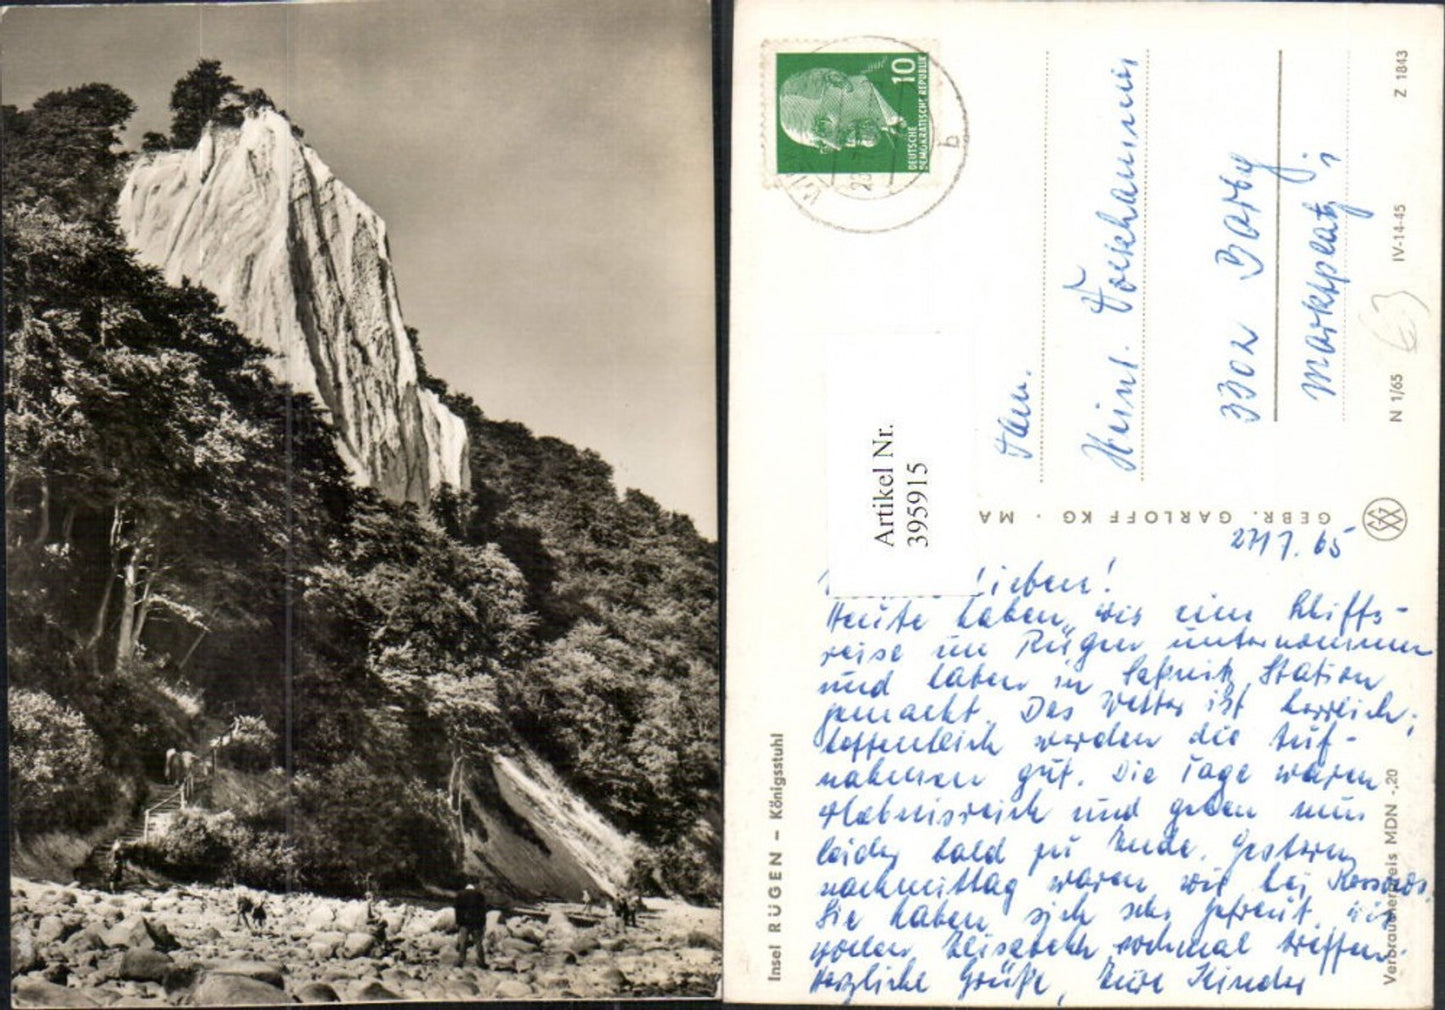 10
DEUTSCHE
DEMOKRATISCHE REPUBLIK
b
Artikel Nr.
395915
Fam.
Heinr.
3302 Barby
Marktplatz
Z 1843
IV-14-45
N 1/65
63
GEBR. GARLOFF KG · MA
Insel RÜGEN – Königsstuhl
Verbraucherpreis MDN -,20
27/7. 65
Lieben!
Heute haben wir eine Schiffs-
reise um Rügen unternommen
und haben in Saßnitz Station
gemacht. Das Wetter ist herrlich;
hoffentlich werden die Auf-
nahmen gut. Die Tage waren
erlebnisreich und gehen nun
leider bald zu Ende. Gestern
nachmittag waren wir bei
Sie haben sich sehr gefreut, wir
wollen Elisabeth nochmal treffen.
Herzliche Grüße, Eure Kinder